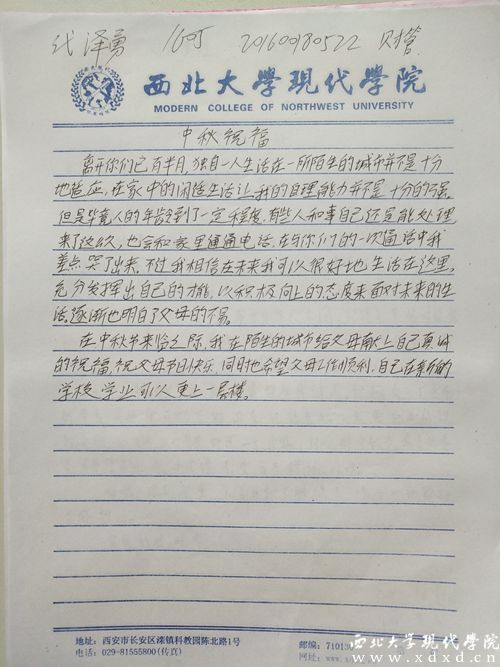 代泽勇 1605 20160180522 财管
西北大學現代學院
MODERN COLLEGE OF NORTHWEST UNIVERSITY
中秋祝福
离开你们已有半月,独自一人生活在一所陌生的城市并不是十分
地适应,在家中的闲适生活让我的自理能力并不是十分的强。
但是毕竟人的年龄到了一定程度,有些人和事自己还是能处理
来了这么久,也会和家里通通电话。在与你们的一次通话中我
差点哭了出来。不过我相信在未来我可以很好地生活在这里,
充分发挥出自己的才能,以积极向上的态度来面对未来的生
活,逐渐也明白了父母的不易。
在中秋节来临之际,我在陌生的城市给父母献上自己真诚
的祝福,祝父母节日快乐,同时也希望父母工作顺利,自己在新的
学校学业可以更上一层楼。
地址:西安市长安区滦镇科教园陈北路1号
电话:029-81555800(传真)
邮编:7101
网址:
西北大学现代学院
www.xdxd.cn